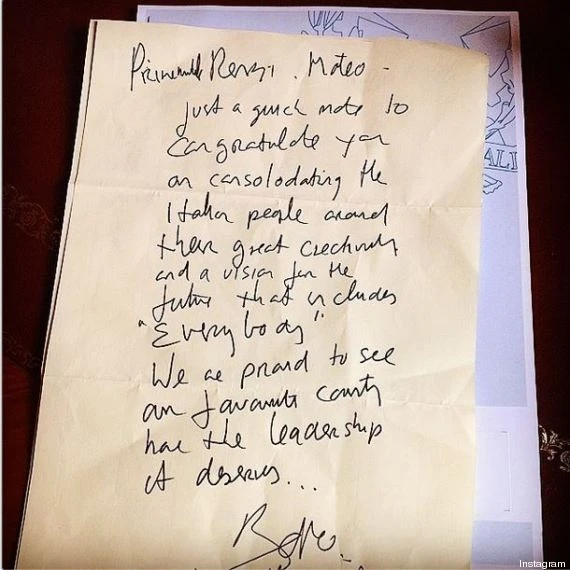 Renzi. Mateo -
Just a quick note to
congratulate you
on consolodating the
Italian people around
their great creativity
and a vision for the
future that includes
"Everybody"
We are proud to see
our favourite country
have the leadership
it deserves...
Bono
ALI
Instagram